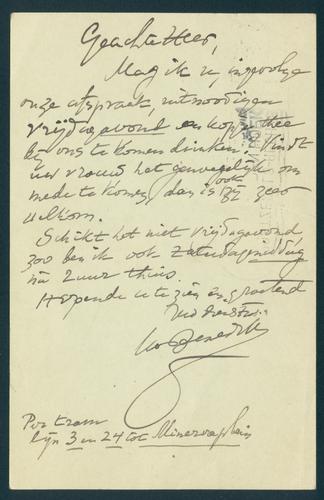 Geachte Heer,
Mag ik u, ingevolge
onze afspraak, uitnoodigen
Vrijdagavond een kopje thee
bij ons te komen drinken. Vindt
uw vrouw het genoegelijk om
mede te komen, dan is zij ook zeer
welkom.
Schikt het niet Vrijdagavond
zoo ben ik ook Zaterdagmiddag
na 2 uur thuis.
Hopende u te zien en groetend
Per tram
lijn 3 en 24 tot Minervaplein